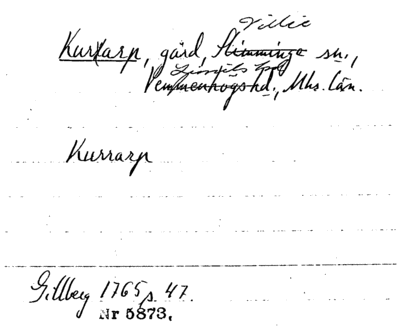 Villie
Kurrarp, gård, Slimminge sn.,
Ljunits hd
Vemmenhögs hd., Mhs. län.
Kurrarp
Gillberg 1765 s. 47.
Nr 5873.